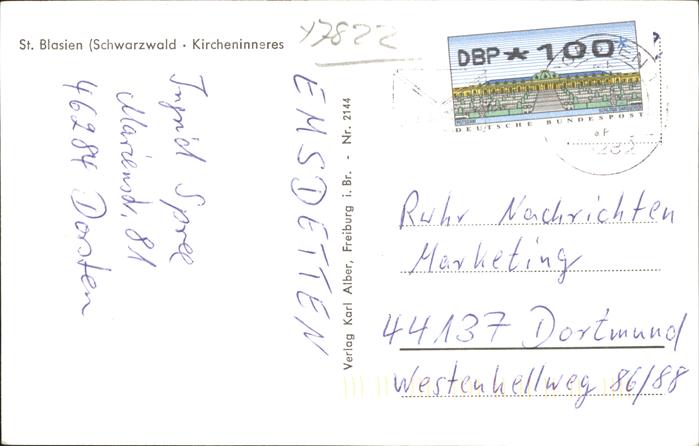 St. Blasien (Schwarzwald · Kircheninneres
Y7822
Ingrid Spree
Marienstr. 81
46284 Dorsten
EMSDETTEN
Verlag Karl Alber, Freiburg i. Br. - Nr. 2144
DBP * 100
DEUTSCHE BUNDESPOST
Ruhr Nachrichten
Marketing
44137 Dortmund
Westenhellweg 86/88